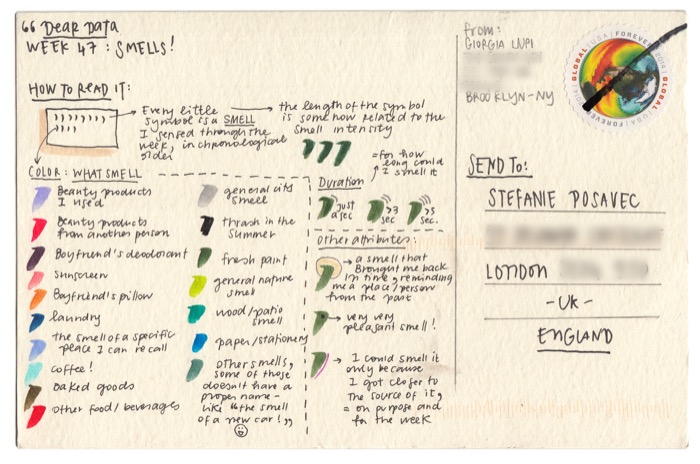 “ DEAR DATA
WEEK 47 : SMELLS!
HOW TO READ IT:
EVERY little
symbol is a SMELL
I sensed through the
week, in chronological
order
the length of the symbol
is some how related to the
smell intensity
COLOR: WHAT SMELL
Beauty products
I used
Beauty products
from another person
Boyfriend's deodorant
sunscreen
Boyfriend's pillow
laundry
the smell of a specific
place I can recall
coffee!
baked goods
other food/ beverages
general city
smell
thrash in the
summer
fresh paint
general nature
smell
wood/patio
smell
paper/stationery
other smells,
some of those
doesn't have a
proper name –
like “the smell
of a new car!„
Duration
= for how
long could
I smell it
just
a sec
>3
sec
>5
sec.
other attributes:
a smell that
Brought me back
in time, reminding
me a place/person
from the past
very very
pleasant smell!
I could smell it
only because
I got closer to
the source of it,
= on purpose and
for the week
from:
GIORGIA LUPI
BROOKLYN-NY
GLOBAL USA FOREVER 2014
GLOBAL USA FOREVER
SEND TO:
STEFANIE POSAVEC
LONDON
- UK -
ENGLAND